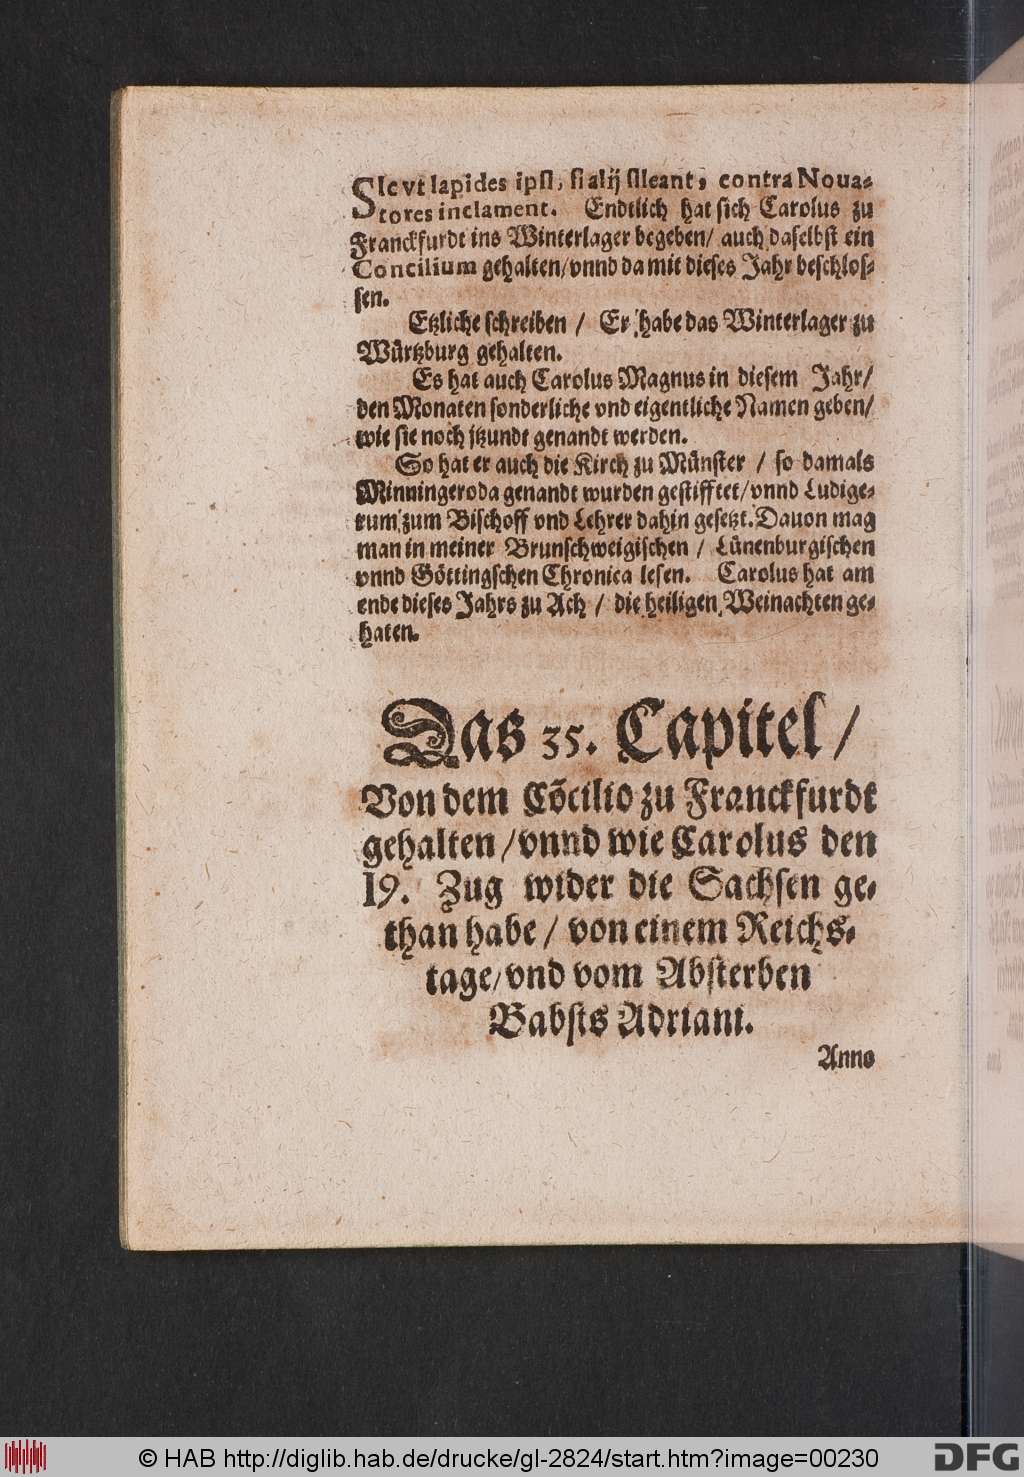 Sic vt lapides ipsi, si alij sileant, contra Noua-
tores inclament. Endtlich hat sich Carolus zu
Franckfurdt ins Winterlager begeben/ auch daselbst ein
Concilium gehalten/vnnd damit dieses Jahr beschlos-
sen.
Etzliche schreiben / Er habe das Winterlager zu
Würtzburg gehalten.
Es hat auch Carolus Magnus in diesem Jahr/
den Monaten sonderliche vnd eigentliche Namen geben/
wie sie noch jtzundt genandt werden.
So hat er auch die Kirch zu Münster / so damals
Minningeroda genandt wurden gestifftet/vnnd Ludige-
rum zum Bischoff vnd Lehrer dahin gesetzt. Dauon mag
man in meiner Brunschweigischen / Lünenburgischen
vnnd Göttingschen Chronica lesen. Carolus hat am
ende dieses Jahrs zu Ach / die heiligen Weinachten ge-
haten.
Das 35. Capitel /
Von dem Cõcilio zu Franckfurdt
gehalten /vnnd wie Carolus den
19. Zug wider die Sachsen ge-
than habe / von einem Reichs-
tage/vnd vom Absterben
Babsts Adriani.
Anno
© HAB http://diglib.hab.de/drucke/gl-2824/start.htm?image=00230
DFG